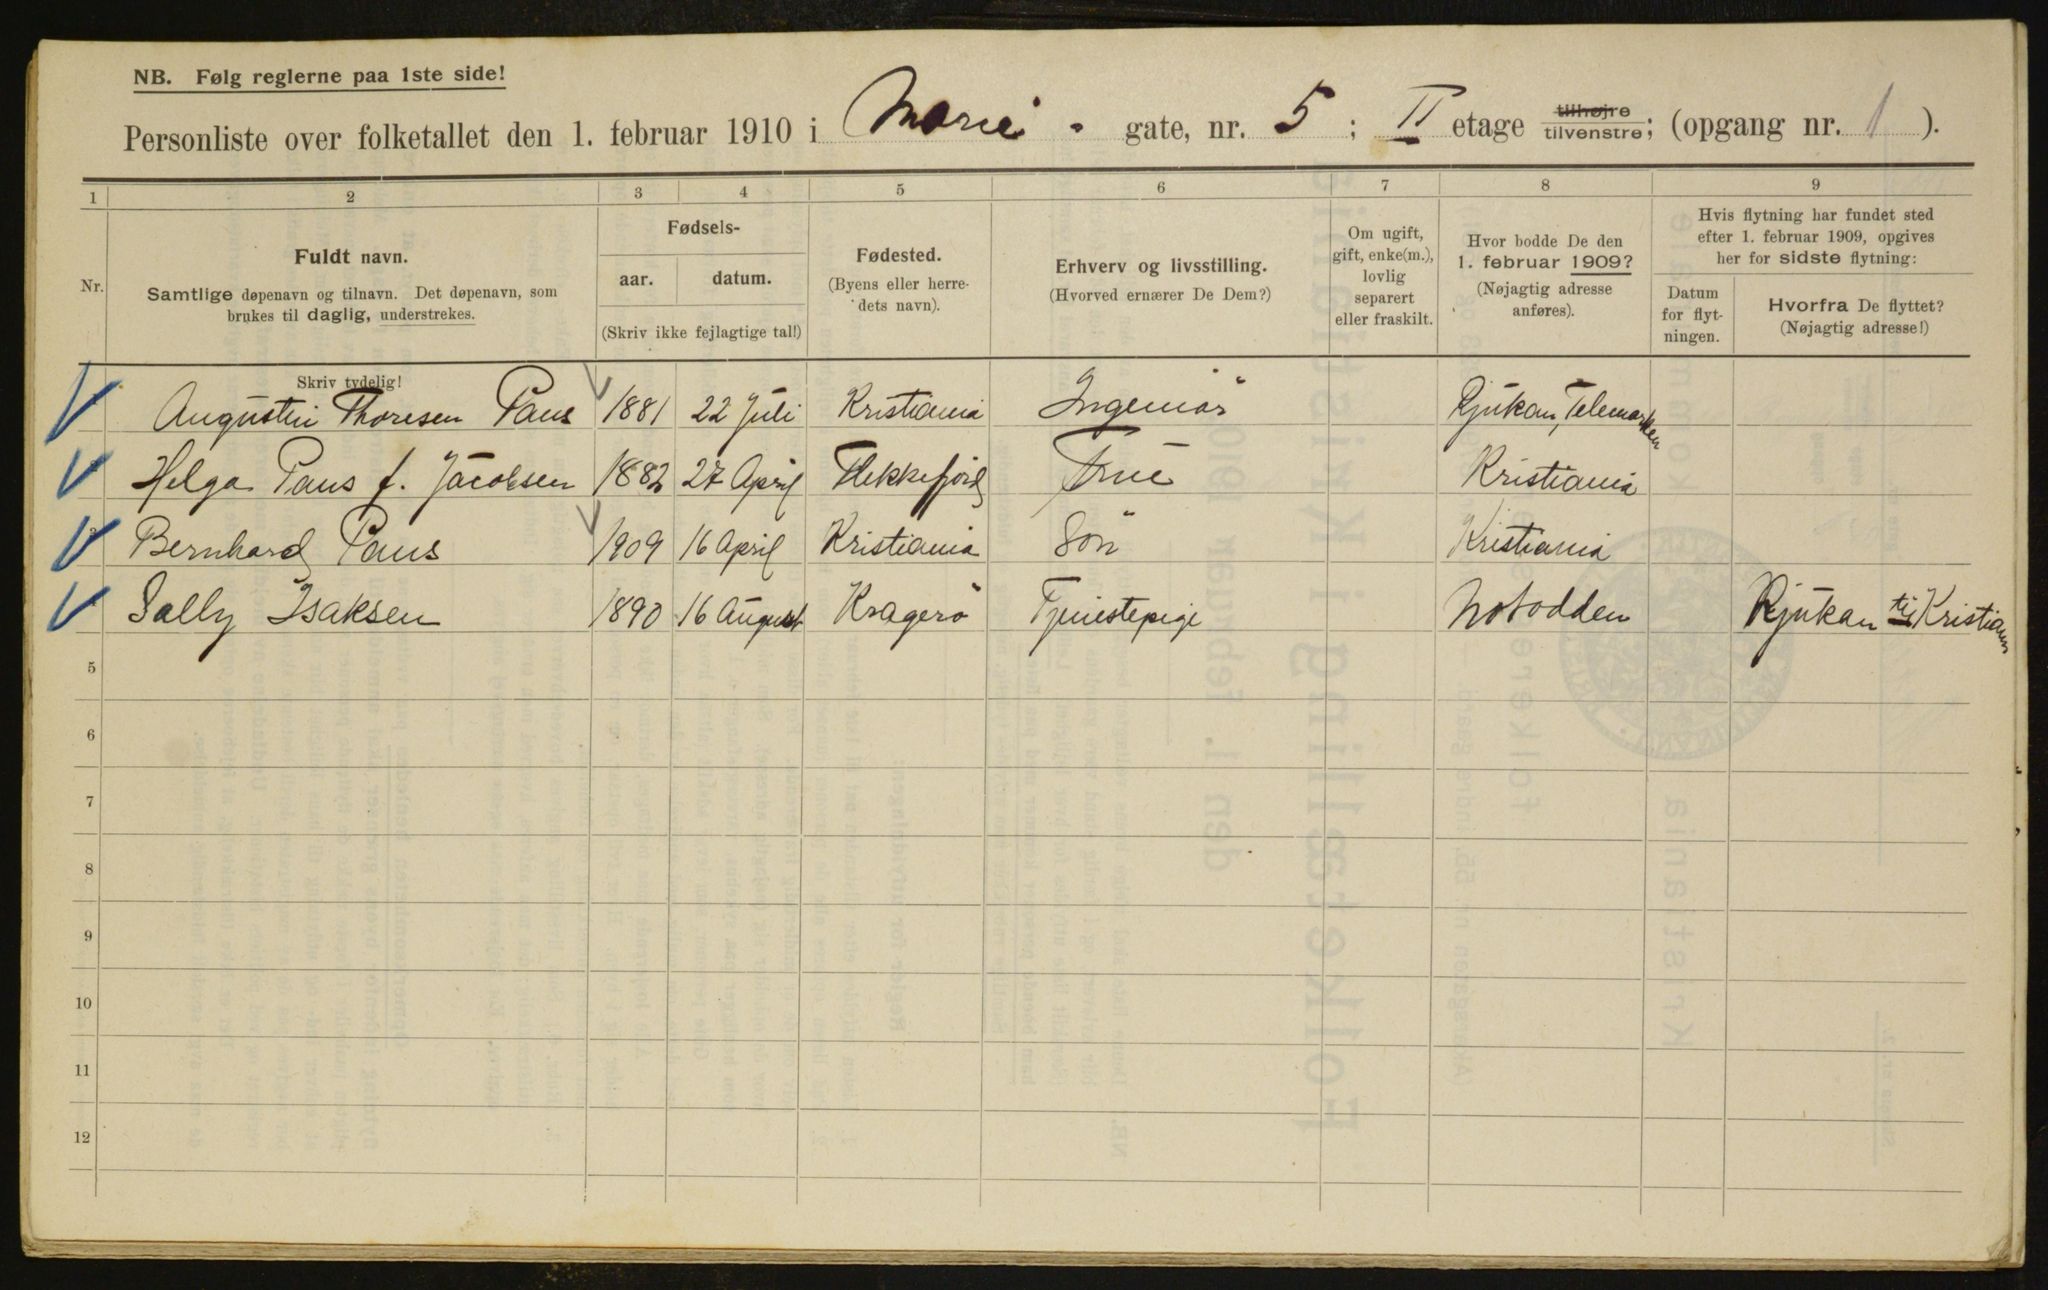 NB. Følg reglerne paa 1ste side!
Personliste over folketallet den 1. februar 1910 i Marie - gate, nr. 5 ; II etage tilhøjre tilvenstre; (opgang nr. 1 ).
1 2 3 4 5 6 7 8 9
Nr.
Fuldt navn.
Samtlige døpenavn og tilnavn. Det døpenavn, som
brukes til daglig, understrekes.
Skriv tydelig!
Fødsels-
aar. datum.
(Skriv ikke fejlagtige tal!)
Fødested.
(Byens eller herre-
dets navn).
Erhverv og livsstilling.
(Hvorved ernærer De Dem?)
Om ugift,
gift, enke(m.),
lovlig
separert
eller fraskilt.
Hvor bodde De den
1. februar 1909?
(Nøjagtig adresse
anføres).
Hvis flytning har fundet sted
efter 1. februar 1909, opgives
her for sidste flytning:
Datum
for flyt-
ningen.
Hvorfra De flyttet?
(Nøjagtig adresse!)
Augustin Thoresen Paus 1881 22 Juli Kristiania Ingeniör Rjukan, Telemarken
Helga Paus f. Jacobsen 1882 27 April Flekkefjord Frue Kristiania
Bernhard Paus 1909 16 April Kristiania Sön Kristiania
Sally Isaksen 1890 16 August Kragerö Tjenestepige Notodden Rjukan til Kristiania
5
6
7
8
9
10
11
12